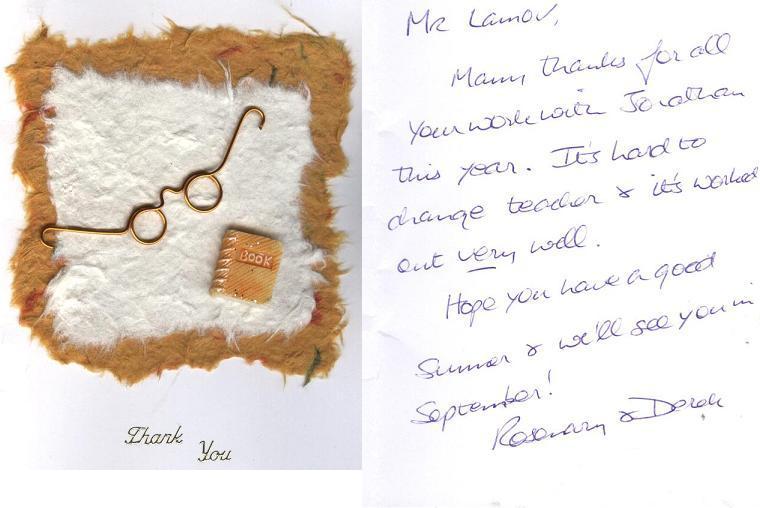 BOOK
Thank
You
Mr Lamov,
Many thanks for all
your work with Jonathan
this year. It's hard to
change teacher & it's worked
out very well.
Hope you have a good
Summer & we'll see you in
September!
Rosemary & Derek